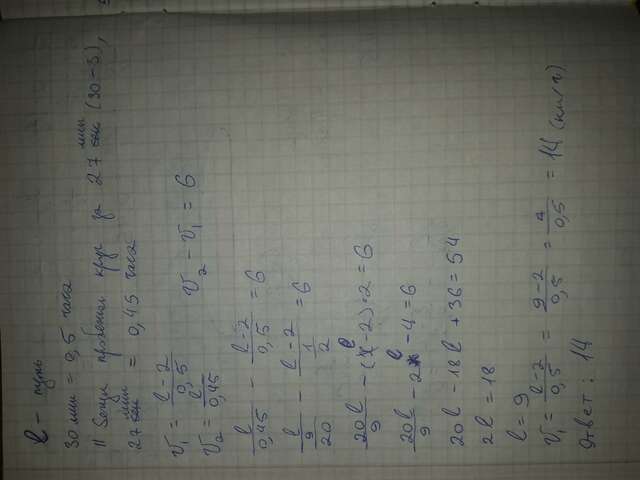 l - путь
30 мин = 0,5 часа
II бегун пробежал круг за 27 мин (30-3),
27 мин = 0,45 часа
v₁ = (l-2)/0,5
v₂ = l/0,45    v₂ - v₁ = 6
l/0,45 - (l-2)/0,5 = 6
l/(9/20) - (l-2)/(1/2) = 6
20l/9 - (l-2)·2 = 6
20l/9 - 2l - 4 = 6
20l - 18l + 36 = 54
2l = 18
l = 9
v₁ = (l-2)/0,5 = (9-2)/0,5 = 7/0,5 = 14 (км/ч)
Ответ: 14